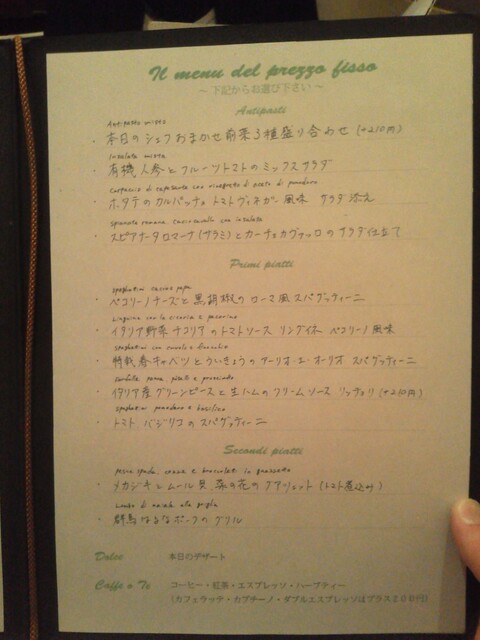 Il menu del prezzo fisso
～ 下記からお選び下さい ～
Antipasti
Antipasto misto
・本日のシェフおまかせ前菜3種盛り合わせ (+210円)
Insalata mista
・有機人参とフルーツトマトのミックスサラダ
Carpaccio di capesante con
・ホタテのカルパッチョ トマトヴィネガー風味 サラダ添え
spianata romana con insalata
・スピアナータロマーナ(サラミ)とカーチョカヴァッロのサラダ仕立て
Primi piatti
spaghetini cacio pepe
・ペコリーノチーズと黒胡椒のローマ風スパゲッティーニ
Linguine con la cicoria e pecorino
・イタリア野菜チコリアのトマトソース リングイネ ペコリーノ風味
spaghetini con cavolo e finocchio
・特栽春キャベツとういきょうのアーリオ・エ・オーリオ スパゲッティーニ
panna piselli e prosciutto
・イタリア産グリーンピースと生ハムのクリームソース リッチョリ (+210円)
spaghetini pomodoro e basilico
・トマト バジリコのスパゲッティーニ
Secondi piatti
pesce spada, cozze e broccoletti in guazzetto
・メカジキとムール貝、菜の花のグアツェット (トマト煮込み)
Lombo di maiale alla griglia
・群馬はるなポークのグリル
Dolce 本日のデザート
Caffe o Te コーヒー・紅茶・エスプレッソ・ハーブティー
(カフェラッテ・カプチーノ・ダブルエスプレッソはプラス200円)